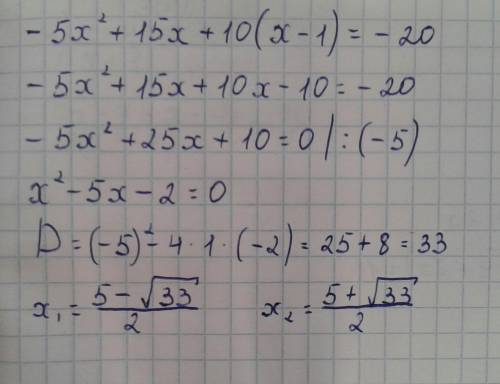 - 5x² + 15x + 10(x - 1) = - 20
- 5x² + 15x + 10x - 10 = - 20
- 5x² + 25x + 10 = 0 | : (-5)
x² - 5x - 2 = 0
D = (-5)² - 4 · 1 · (-2) = 25 + 8 = 33
x₁ = (5 - √33)/2 x₂ = (5 + √33)/2